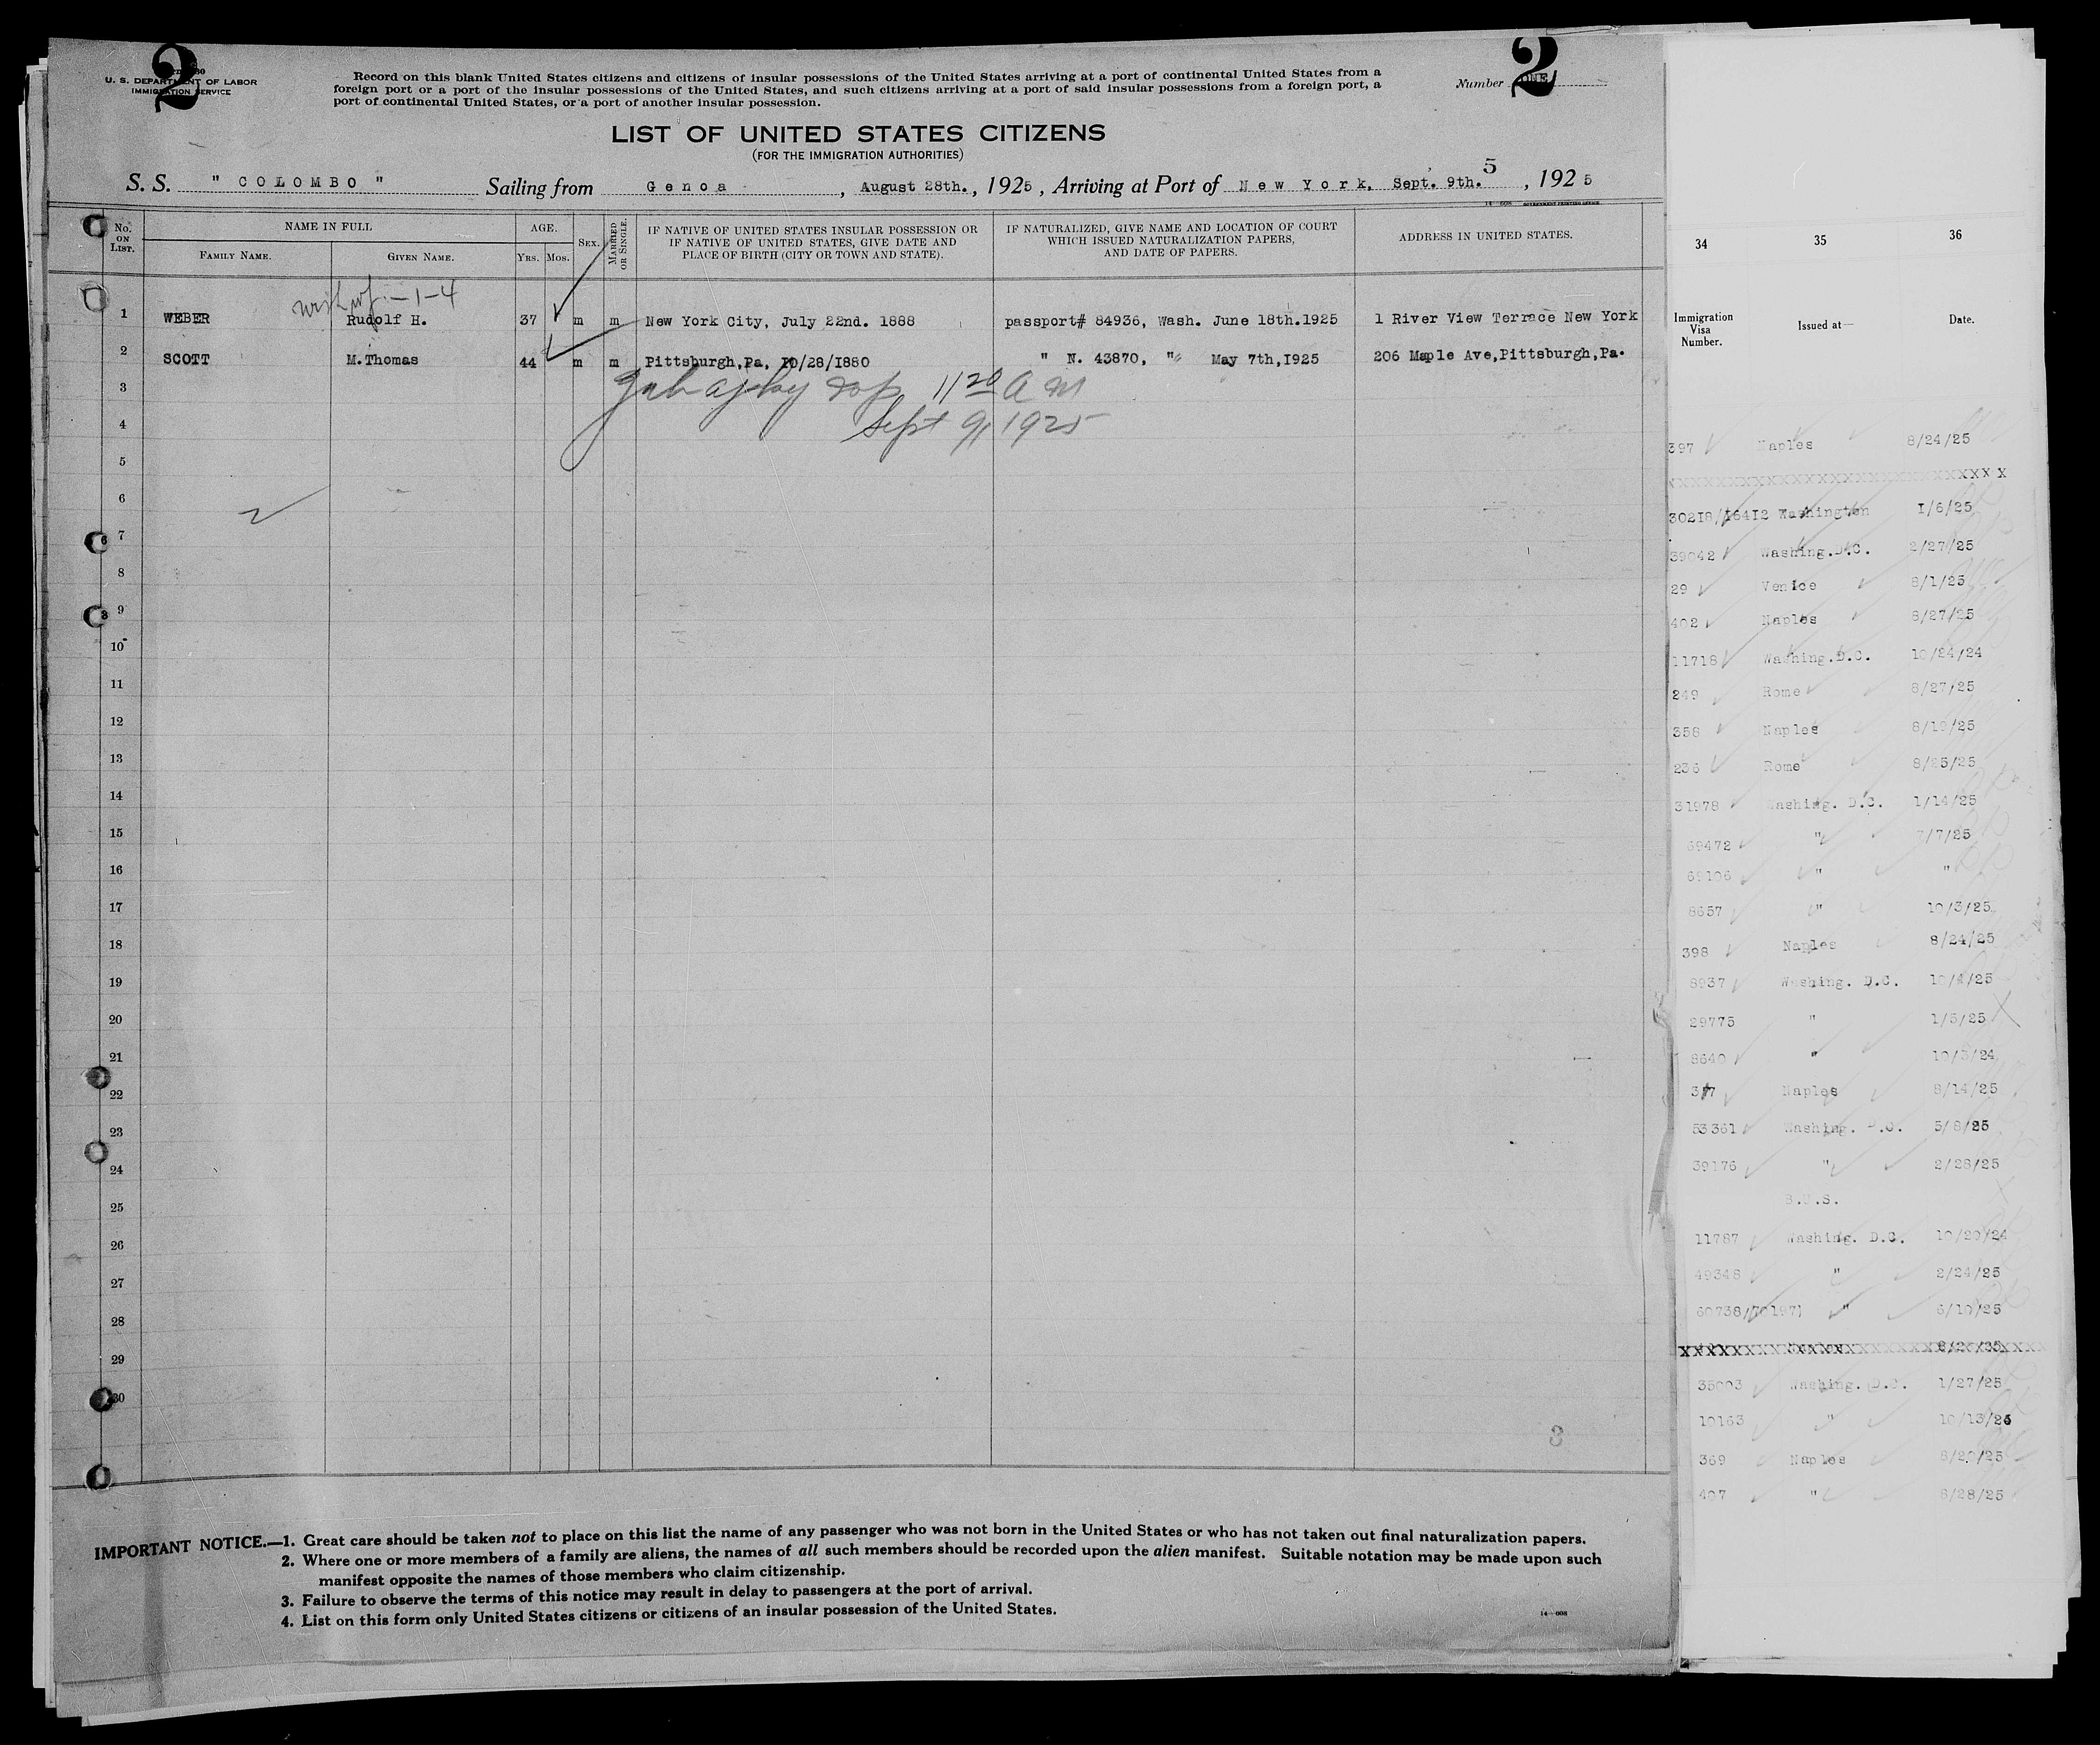 2
U. S. DEPARTMENT OF LABOR
IMMIGRATION SERVICE
Record on this blank United States citizens and citizens of insular possessions of the United States arriving at a port of continental United States from a
foreign port or a port of the insular possessions of the United States, and such citizens arriving at a port of said insular possessions from a foreign port, a
port of continental United States, or a port of another insular possession.
Number ONE
2
LIST OF UNITED STATES CITIZENS
(FOR THE IMMIGRATION AUTHORITIES)
S. S. " COLOMBO " Sailing from Genoa, August 28th., 1925, Arriving at Port of New York, Sept. 9th., 1925
5
14—608 GOVERNMENT PRINTING OFFICE
No. ON LIST.
NAME IN FULL
FAMILY NAME.
GIVEN NAME.
AGE.
YRS.
MOS.
SEX.
MARRIED OR SINGLE.
IF NATIVE OF UNITED STATES INSULAR POSSESSION OR
IF NATIVE OF UNITED STATES, GIVE DATE AND
PLACE OF BIRTH (CITY OR TOWN AND STATE).
IF NATURALIZED, GIVE NAME AND LOCATION OF COURT
WHICH ISSUED NATURALIZATION PAPERS,
AND DATE OF PAPERS.
ADDRESS IN UNITED STATES.
—1—4
1 WEBER Rudolf H. 37 m m New York City, July 22nd. 1888 passport# 84936, Wash. June 18th.1925 1 River View Terrace New York
2 SCOTT M.Thomas 44 m m Pittsburgh,Pa, 10/28/1880 " N. 43870, " May 7th,1925 206 Maple Ave,Pittsburgh,Pa.
3
11 20 A M
4
Sept 9, 1925
5
6
7
8
9
10
11
12
13
14
15
16
17
18
19
20
21
22
23
24
25
26
27
28
29
30
3
IMPORTANT NOTICE.—1. Great care should be taken not to place on this list the name of any passenger who was not born in the United States or who has not taken out final naturalization papers.
2. Where one or more members of a family are aliens, the names of all such members should be recorded upon the alien manifest. Suitable notation may be made upon such
manifest opposite the names of those members who claim citizenship.
3. Failure to observe the terms of this notice may result in delay to passengers at the port of arrival.
4. List on this form only United States citizens or citizens of an insular possession of the United States.
14—608
34 35 36
Immigration
Visa
Number.
Issued at—
Date.
397 Naples 8/24/25
30218/16412 Washington 1/6/25
39042 Washing.D.C. 2/27/25
29 Venice 8/1/25
402 Naples 8/27/25
11718 Washing.D.C. 10/24/24
249 Rome 8/27/25
358 Naples 8/19/25
236 Rome 8/25/25
31978 Washing. D.C. 1/14/25
69472 " 7/7/25
69106 " "
8657 " 10/3/25
398 Naples 8/24/25
8937 Washing. D.C. 10/4/25
29775 " 1/5/25
8640 " 10/3/24
Naples 8/14/25
53361 Washing. D.C. 5/8/25
39176 " 2/28/25
11787 Washing. D.C. 10/20/24
49348 " 2/24/25
60738/ " 6/10/25
35003 Washing. D.C. 1/27/25
10163 "
369 Naples
407 " 8/28/25